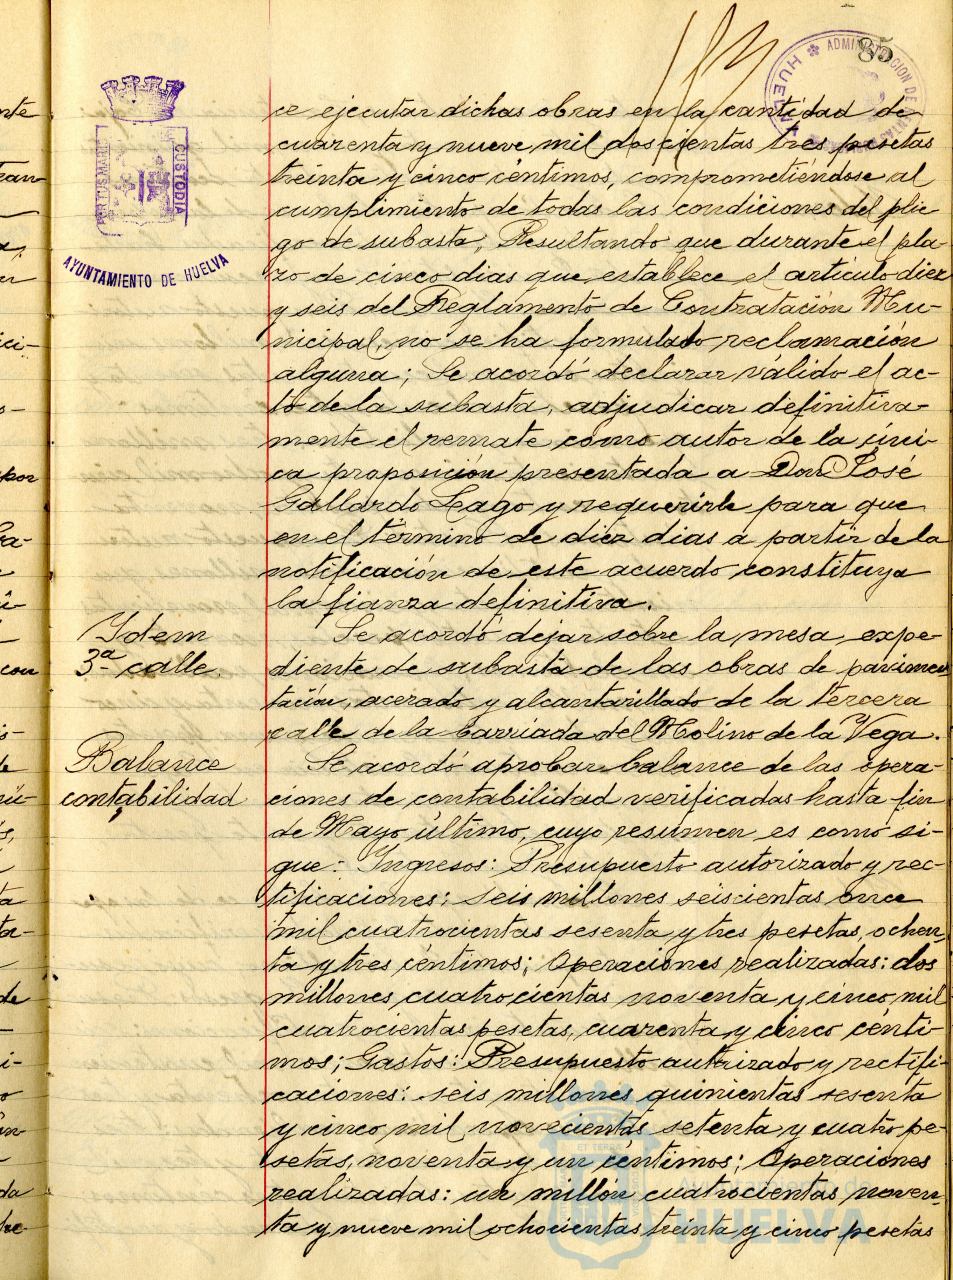 85
ADMINISTRACION DE
HUELVA
PORTUS MARIS
CUSTODIA
AYUNTAMIENTO DE HUELVA
ce ejecutar dichas obras en la cantidad de
cuarenta y nueve mil doscientas tres pesetas
treinta y cinco céntimos, comprometiéndose al
cumplimiento de todas las condiciones del plie
go de subasta; Resultando que durante el pla-
zo de cinco dias que establece el artículo diez
y seis del Reglamento de Contratación Mu-
nicipal, no se ha formulado reclamación
alguna; Se acordó declarar válido el ac-
to de la subasta, adjudicar definitiva-
mente el remate como autor de la úni-
ca proposición presentada a Don José
Gallardo Lago y requerirle para que
en el término de diez dias a partir de la
notificación de este acuerdo constituya
la fianza definitiva.
Idem
3ª calle.
Se acordó dejar sobre la mesa, expe-
diente de subasta de las obras de pavimen
tación, acerado y alcantarillado de la tercera
calle de la barriada del Molino de la Vega.
Balance
contabilidad
Se acordó aprobar balance de las opera-
ciones de contabilidad verificadas hasta fin
de Mayo último, cuyo resumen es como si-
gue: Ingresos: Presupuesto autorizado y rec-
tificaciones: seis millones seiscientas once
mil cuatrocientas sesenta y tres pesetas, ochen
ta y tres céntimos; Operaciones realizadas: dos
millones cuatrocientas noventa y cinco mil
cuatrocientas pesetas, cuarenta y cinco cénti-
mos; Gastos: Presupuesto autorizado y rectifi-
caciones: seis millones quinientas sesenta
y cinco mil novecientas setenta y cuatro pe-
setas, noventa y un céntimos; Operaciones
realizadas: un millón cuatrocientas noven-
ta y nueve mil ochocientas treinta y cinco pesetas
Ayuntamiento de
HUELVA